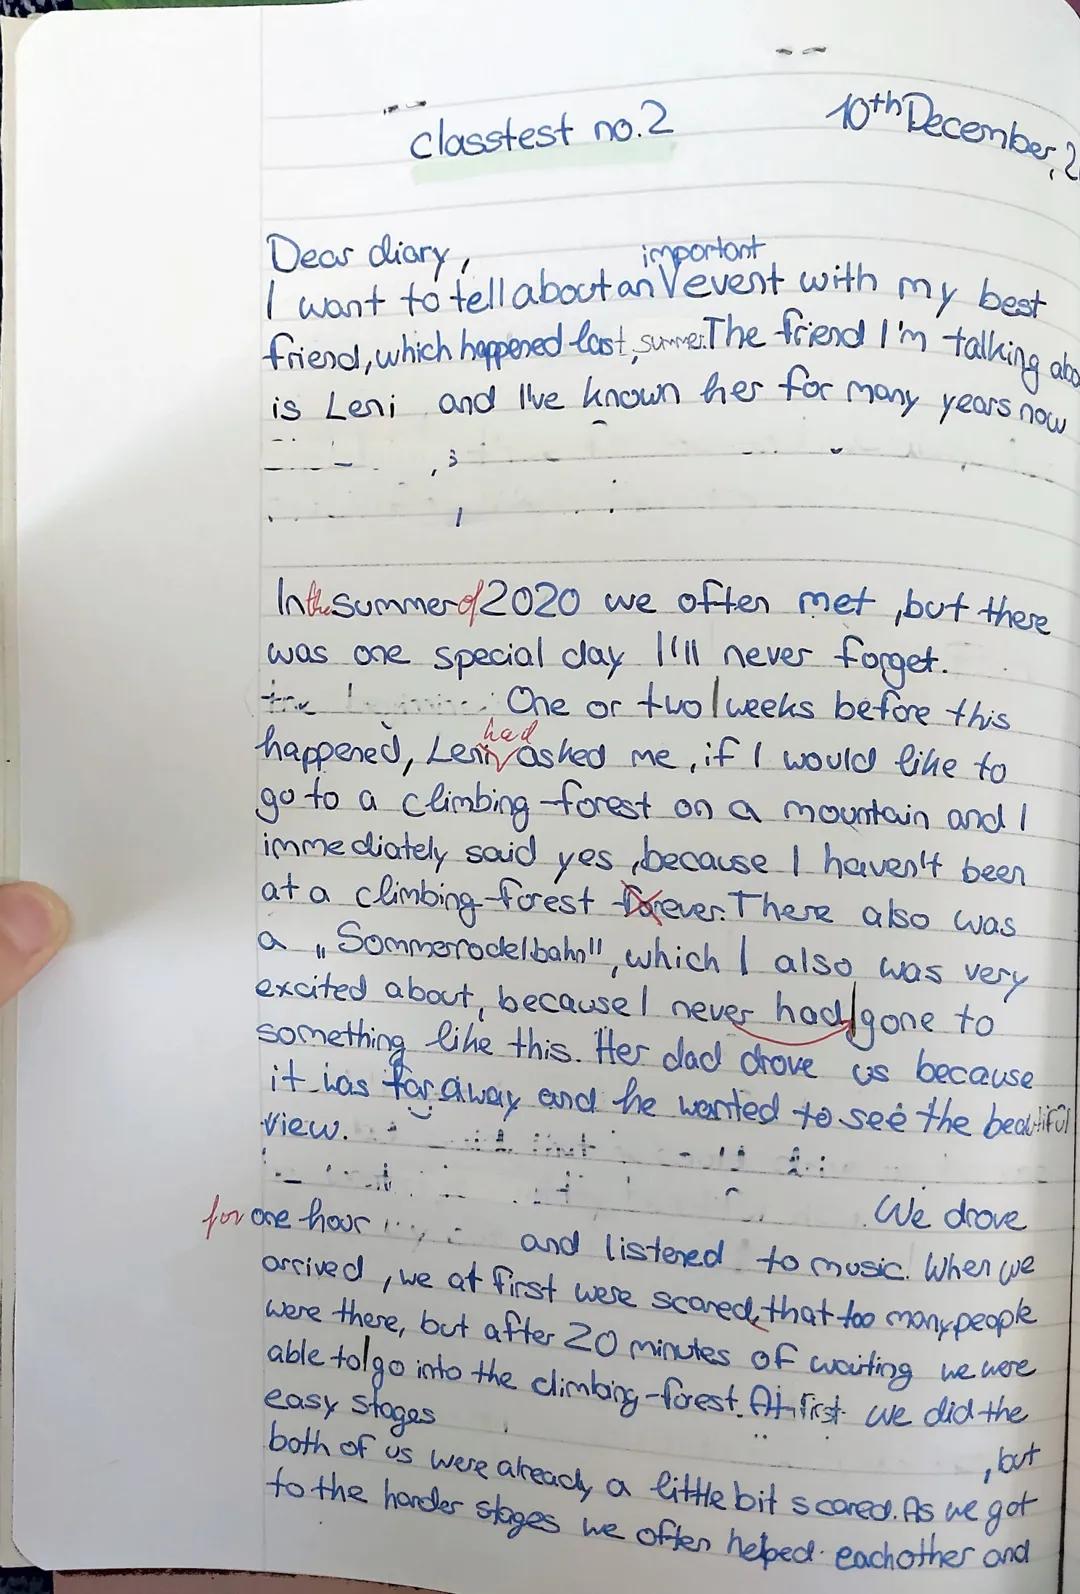 classtest no.2
10th December, 2
Dear diary,
important
I want to tell about an V event with my best
friend, which happened last summer. The friend I'm talking abo
is Leni and I've known her for many years now
In the summer of 2020 we often met, but there
was one special day I'll never forget.
One or two weeks before this
had
happened, Leni asked me, if I would like to
go to a climbing-forest on a mountain and I
immediately said yes, because I haven't been
at a climbing-forest forever. There also was
a „Sommerrodelbahn", which I also was very
excited about, because I never had gone to
something like this. Her dad drove us because
it was far away and he wanted to see the beautiful
view.
We drove
for one hour and listened to music. When we
arrived, we at first were scared, that too many people
were there, but after 20 minutes of waiting we were
able to go into the climbing-forest. At first we did the
easy stages
, but
both of us were already a little bit scared. As we got
to the harder stages we often helped eachother and